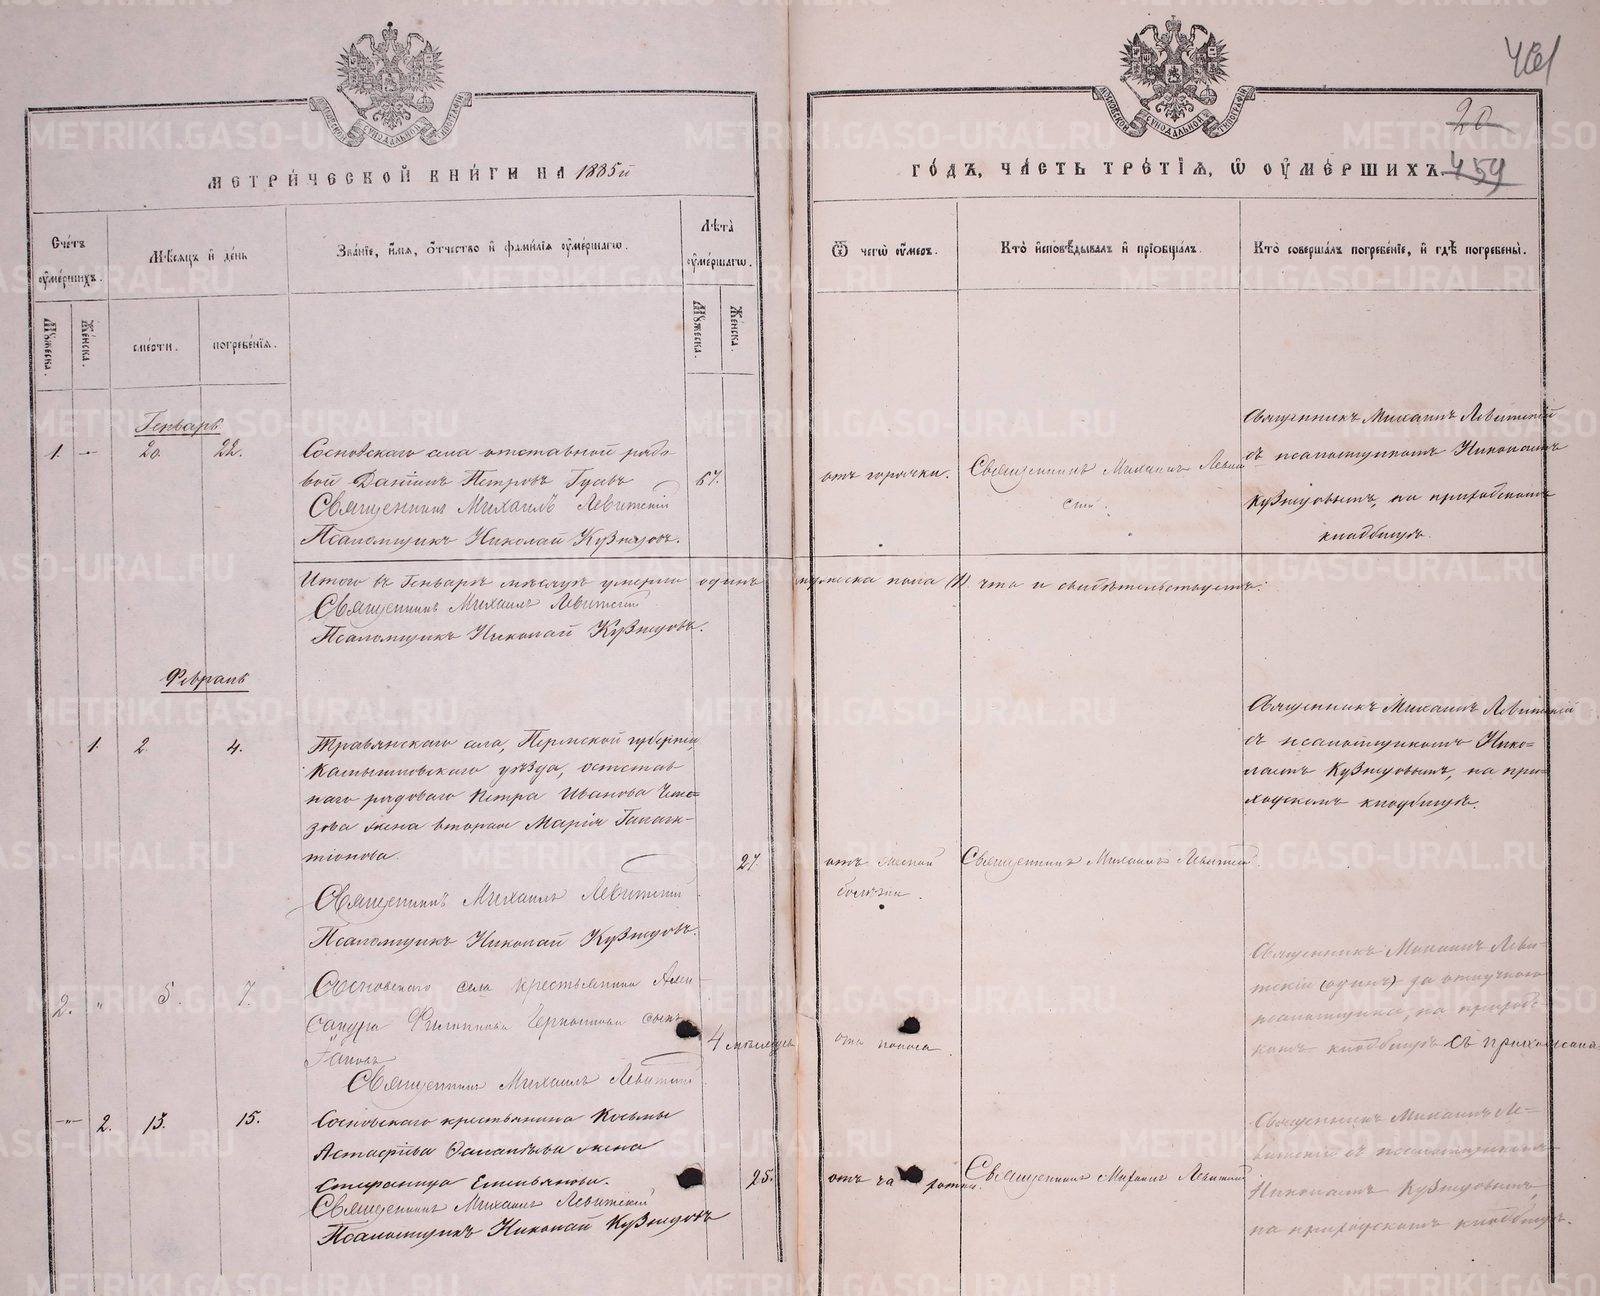 461
20
459
МЕТРИ́ЧЕСКОЙ КНИ́ГИ НА 1885й
ГО́ДЪ, ЧА́СТЬ ТРЕ́ТІѦ, Ѡ ОУ҆МЕ́РШИХЪ.
Сче́тъ оу҆ме́ршихъ.
Мѣ́сяцъ и҆ де́нь
Зва́нїе, и҆́мѧ, ѻ҆́тчество и҆ фами́лїѧ оу҆ме́ршагѡ.
Лѣ́та оу҆ме́ршагѡ.
Ѿ чегѡ̀ оу҆́меръ.
Кто̀ и҆сповѣ́дывалъ и҆ прїобща́лъ.
Кто̀ соверша́лъ погребе́нїе, и҆ гдѣ̀ погребены̀.
Мꙋ́жеска.
Же́нска.
сме́рти.
погребе́нїѧ.
Мꙋ́жеска.
Же́нска.
Генварь
1. — 20. 22.
Сосновскаго села отставной рядо
вой Данiилъ Петровъ Гусевъ
67.
Священникъ Михаилъ Левитскiй
Псаломщикъ Николай Кузнецовъ.
отъ горячки.
Священникъ Михаилъ Левит
скiй.
Священникъ Михаилъ Левитскiй
съ псаломщикомъ Николаемъ
Кузнецовымъ, на приходскомъ
кладбищѣ.
Итого въ Генварѣ мѣсяцѣ умерло одинъ мужеска пола (1) что и свидѣтельствуемъ:
Священникъ Михаилъ Левитскiй
Псаломщикъ Николай Кузнецовъ.
Февраль
1. 2. 4.
Травянскаго села, Пермской губернiи,
Камышловскаго уѣзда, отстав
наго рядоваго Петра Иванова
жена вторая Марiя Галак-
тiонова.
27.
Священникъ Михаилъ Левитскiй
Псаломщикъ Николай Кузнецовъ.
отъ
болѣзни.
Священникъ Михаилъ Левитскiй.
Священникъ Михаилъ Левитскiй
съ псаломщикомъ Нико=
лаемъ Кузнецовымъ, на при=
ходскомъ кладбищѣ.
2. " 5. 7.
Сосновскаго села крестьянина Алек
сандра Филиппова сынъ
4 мѣсяцевъ
Священникъ Михаилъ Левитскiй
отъ поноса.
Священникъ Михаилъ Леви-
тскiй (одинъ) за отлучкою
псаломщика, на приход-
скомъ кладбищѣ
—"— 2. 13. 15.
Сосновскаго крестьянина Косьмы
Астафьева жена
Стефанида Емельянова.
25.
Священникъ Михаилъ Левитскiй
Псаломщикъ Николай Кузнецовъ
отъ
Священникъ Михаилъ Левитскiй
Священникъ Михаилъ Ле=
витскiй съ псаломщикомъ
Николаемъ Кузнецовымъ,
на приходскомъ кладбищѣ.
METRIKI.GASO-URAL.RU